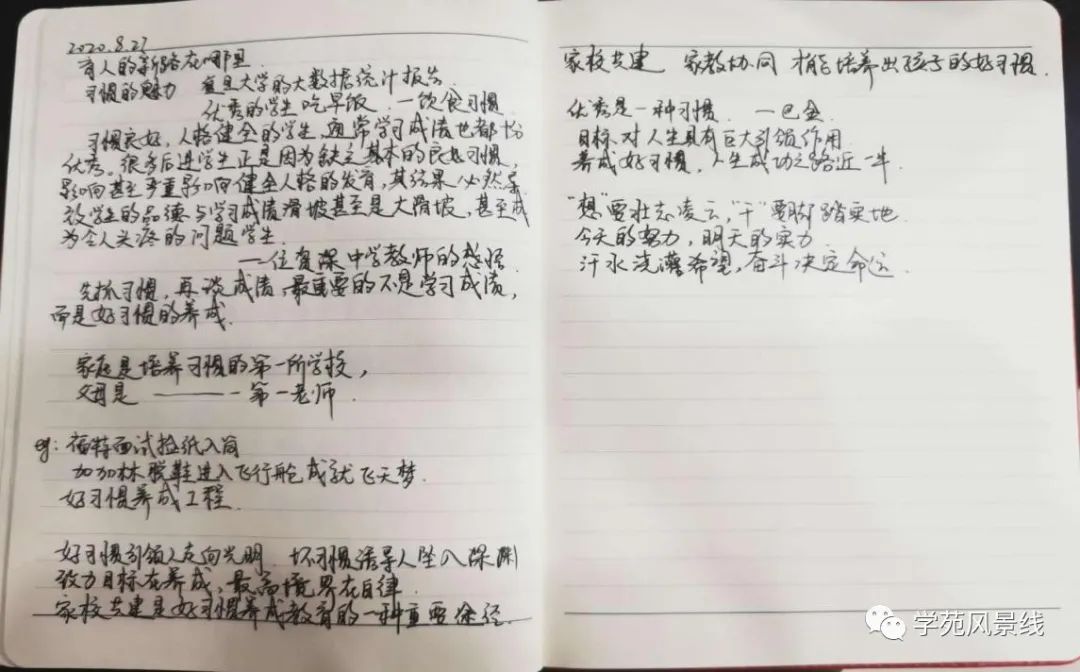 2020.8.27
育人的新路在哪里
习惯的魅力 复旦大学的大数据统计报告
优秀的学生吃早饭 一饮食习惯
习惯良好，人格健全的学生，通常学习成绩也都十分
优秀。很多后进学生正是因为缺乏基本的良好习惯，
影响甚至严重影响健全人格的发育，其结果必然导
致学生的品德与学习成绩滑坡甚至是大滑坡，甚至成
为令人头疼的问题学生。
——位资深中学教师的感悟
先抓习惯，再谈成绩，最重要的不是学习成绩，
而是好习惯的养成。
家庭是培养习惯的第一所学校，
父母是 ———— 第一老师.
eg: 福特面试捡纸入筒
加加林脱鞋进入飞行舱成就飞天梦.
好习惯养成工程.
好习惯引领人走向光明 坏习惯诱导人坠入深渊
致力目标在养成，最高境界在自律.
家校共建是好习惯养成教育的一种重要途径.
家校共建 家教协同 才能培养出孩子的好习惯.
优秀是一种习惯. 一巴金
目标对人生具有巨大引领作用
养成好习惯，人生成功之路近一半.
"想"要壮志凌云，"干"要脚踏实地
今天的努力，明天的实力
汗水浇灌希望，奋斗决定命运.
学苑风景线